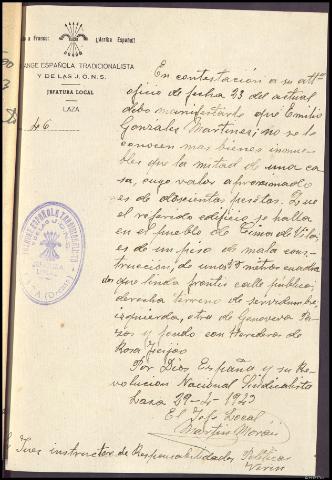 a Franco: ¡Arriba España!
ANGE ESPAÑOLA TRADICIONALISTA
Y DE LAS J.O.N.S.
JEFATURA LOCAL
LAZA
46
En contestación a su attº
oficio de fecha 23 del actual
debo manifestarle que Emilio
Gonzales Martines, no se le
conocen mas bienes inmue-
bles que la mitad de una ca-
sa, cuyo valor aproximado
es de doscientas pesetas. Que
el referido edificio se halla
en el pueblo de Cima de Vila,
es de un piso de mala cons-
trucción, de unos metros cuadra
dos que linda frontis calle pública,
derecha terreno de servidumbre,
izquierda, otra de Genoveva
y fondo con Herederos de
Rosa Feijóo
Por Dios España y su Re-
volucion Nacional Sindicalista
Laza 29-4-
El Jefe Local
Martin Morán
Juez instructor de Responsabilidades Politicas
Verin